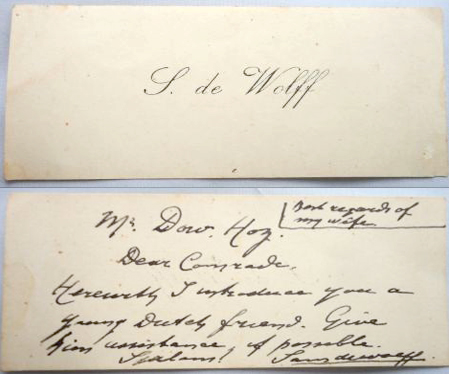 S. de Wolff
Best regards of
my wife
Mr. Dov. Hoz.
Dear Comrade,
Herewith I introduce you a
young Dutch friend. Give
him assistance, if possible.
Sjalom, Sam de Wolff.